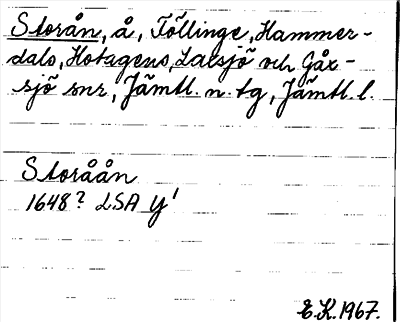 Storån, å, Föllinge, Hammer-
dals, Hotagens, Laxsjö och Gåx-
sjö snr, Jämtl. n. tg, Jämtl. l.
Storåån
1648? LSA y'
E.K. 1967.